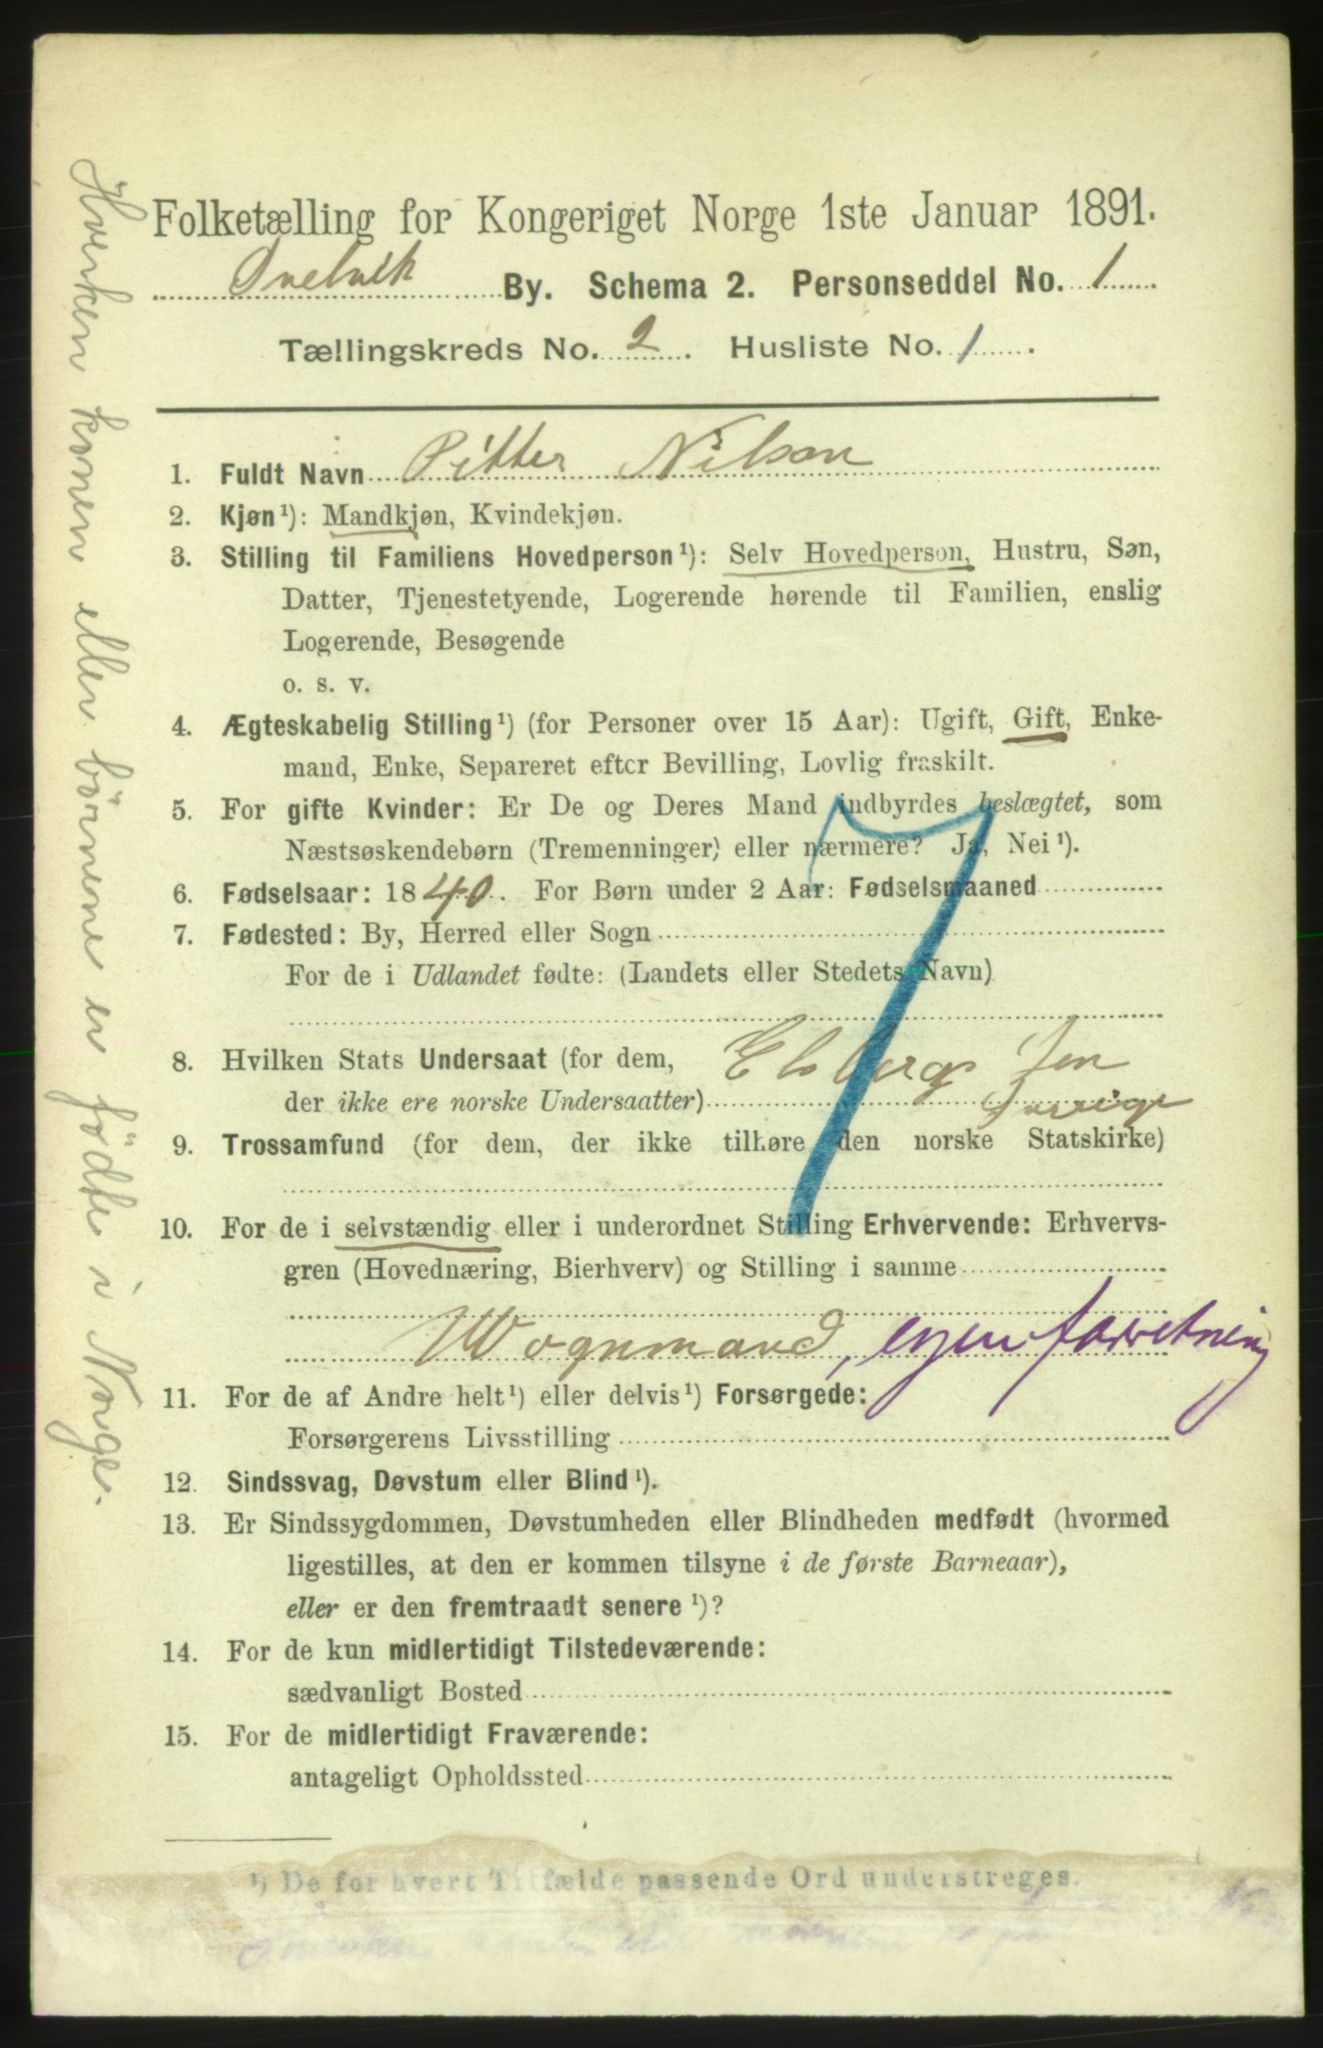 Folketælling for Kongeriget Norge 1ste Januar 1891.
Svelvik By. Schema 2. Personseddel No. 1
Tællingskreds No. 2. Husliste No. 1.
1. Fuldt Navn Pitter Nilson
2. Kjøn ¹): Mandkjøn, Kvindekjøn.
3. Stilling til Familiens Hovedperson ¹): Selv Hovedperson, Hustru, Søn,
Datter, Tjenestetyende, Logerende hørende til Familien, enslig
Logerende, Besøgende
o. s. v.
4. Ægteskabelig Stilling ¹) (for Personer over 15 Aar): Ugift, Gift, Enke-
mand, Enke, Separeret efter Bevilling, Lovlig fraskilt.
5. For gifte Kvinder: Er De og Deres Mand indbyrdes beslægtet, som
Næstsøskendebørn (Tremenninger) eller nærmere? Ja, Nei ¹).
6. Fødselsaar: 1840. For Børn under 2 Aar: Fødselsmaaned
7. Fødested: By, Herred eller Sogn
For de i Udlandet fødte: (Landets eller Stedets Navn)
8. Hvilken Stats Undersaat (for dem, Elsbergs len
der ikke ere norske Undersaatter) Sverige
9. Trossamfund (for dem, der ikke tilhøre den norske Statskirke)
10. For de i selvstændig eller i underordnet Stilling Erhvervende: Erhvervs-
gren (Hovednæring, Bierhverv) og Stilling i samme
Wognmand, egen forretning
11. For de af Andre helt ¹) eller delvis ¹) Forsørgede:
Forsørgerens Livsstilling
12. Sindssvag, Døvstum eller Blind ¹).
13. Er Sindssygdommen, Døvstumheden eller Blindheden medfødt (hvormed
ligestilles, at den er kommen tilsyne i de første Barneaar),
eller er den fremtraadt senere ¹)?
14. For de kun midlertidigt Tilstedeværende:
sædvanligt Bosted
15. For de midlertidigt Fraværende:
antageligt Opholdssted
¹) De for hvert Tilfælde passende Ord understreges.
Hverken konen eller börnene er födte i Norge.